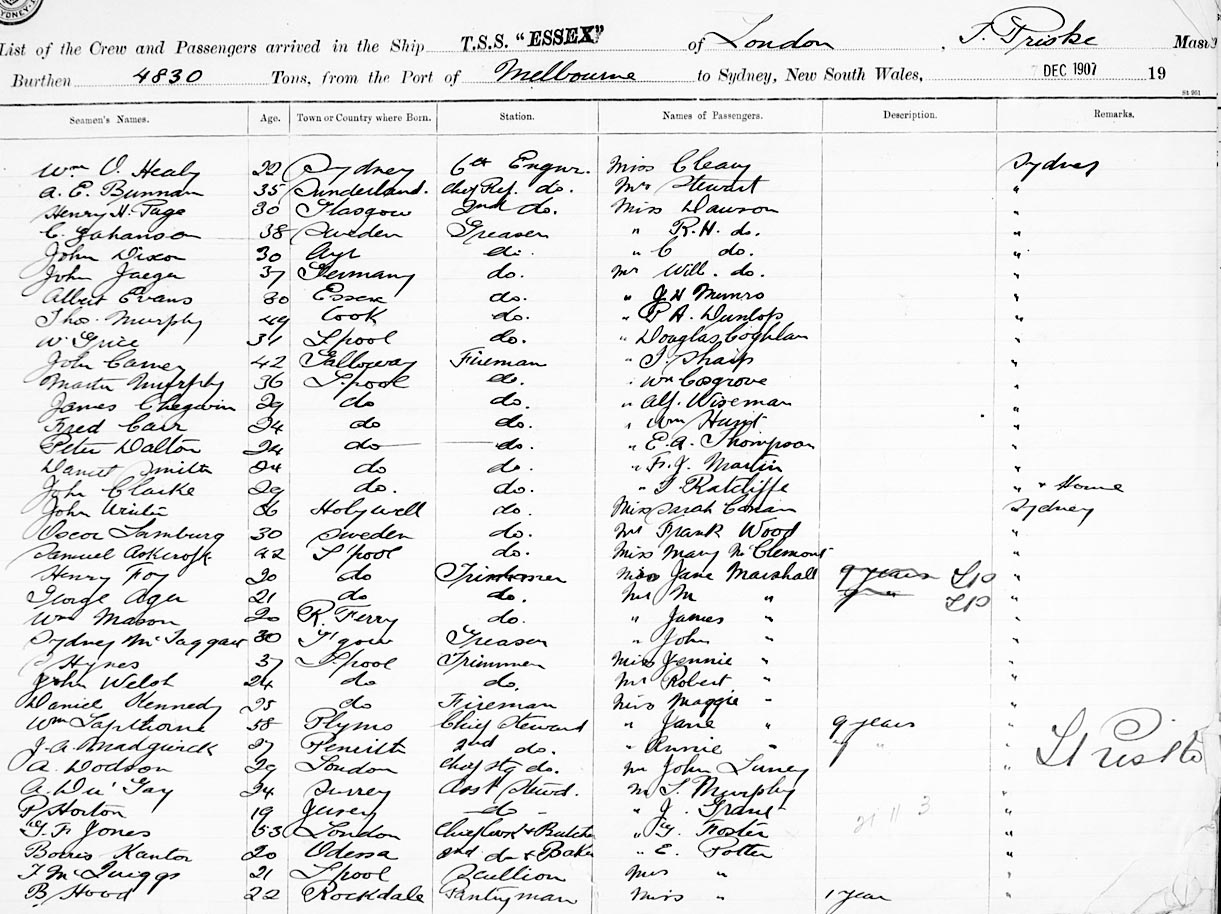 List of the Crew and Passengers arrived in the Ship T.S.S. "ESSEX" of London, Mas
Burthen 4830 Tons, from the Port of Melbourne to Sydney, New South Wales, DEC 1907 19
Seamen's Names. Age. Town or Country where Born. Station. Names of Passengers. Description. Remarks.
Wm O. Healy 22 Sydney 6th Engnr. Miss Cleary Sydney
A. E. 35 Sunderland. Chf Ref. do. Mrs Stewart "
Henry H. Page 30 Glasgow 2nd do. Miss Dawson "
C. 38 Sweden Greaser " R.H. do. "
John Dixon 30 Ayr do. " C do. "
John Jaeger 37 Germany do. Mr Will. do. "
Albert Evans 30 Essex do. " J H Munro "
Thos. Murphy 49 Cook do. " A. Dunlop "
W. Grice 31 L'pool do. " Douglas Coghlan "
John Carney 42 Galloway Fireman " J. Sharp "
Martin Murphy 36 L'pool do. " Wm Cosgrove "
James Chegwin 29 do do. " Alf. Wiseman "
Fred Carr 24 do do. " Wm Hunt "
Peter Dalton 24 do do. " E. A. Thompson "
Daniel Smith 24 do do. " Fr. J. Martin "
John Clarke 29 do. do. " Ratcliffe " + Home
John Winter 36 Holywell do. Miss Sarah Sydney
Oscar 30 Sweden do. Mr Frank Wood "
Samuel Ashcroft 42 L'pool do. Miss Mary Mc Clemont "
Henry Foy 20 do Trimmer Miss Jane Marshall 9 years "
George Ager 21 do do. Mr M " "
Wm Mason 20 R. Ferry do. " James " "
Sydney McTaggart 30 G'gow Greaser " John " "
Hynes 37 L'pool Trimmer Miss Jennie " "
John Welsh 24 do do. Mr Robert " "
Daniel Kennedy 25 do Fireman Miss Maggie " "
Wm Lapthorne 58 Plymo Chief Steward " Jane " 9 years "
J. A. 27 Penrith 2nd do. " Annie " " "
A. Dodson 29 London Chf Stg do. Mr John Luney "
A. Du' Gay 24 Surrey Asst Stewd. Mr L. Murphy "
P. Horton 19 Jersey do " J. Grant "
F. Jones 53 London Chief Cook & Butcher " Foster "
Borris Kantor 20 Odessa 2nd do & Baker " E. Potter "
McQuiggs 21 L'pool Scullion Mrs " "
B Hood 22 Rockdale Pantryman Miss " 1 year "